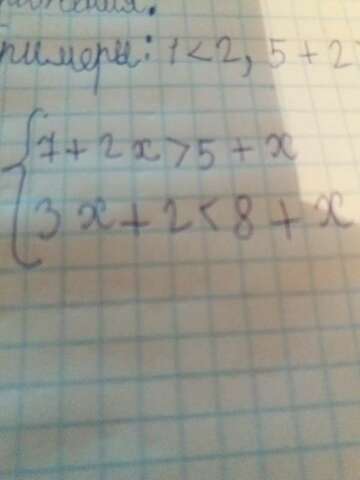 римеры: 1<2, 5+2
7+2x>5+x
3x+2<8+x